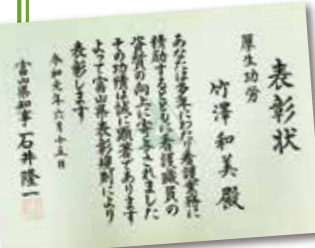 表彰状
厚生功労
竹澤和美殿
あなたは多年にわたり看護業務に
精励するとともに看護職員の
資質の向上に寄与されました
その功績は誠に顕著であります
よって富山県表彰規則により
表彰します
令和元年六月十五日
富山県知事 石井隆一